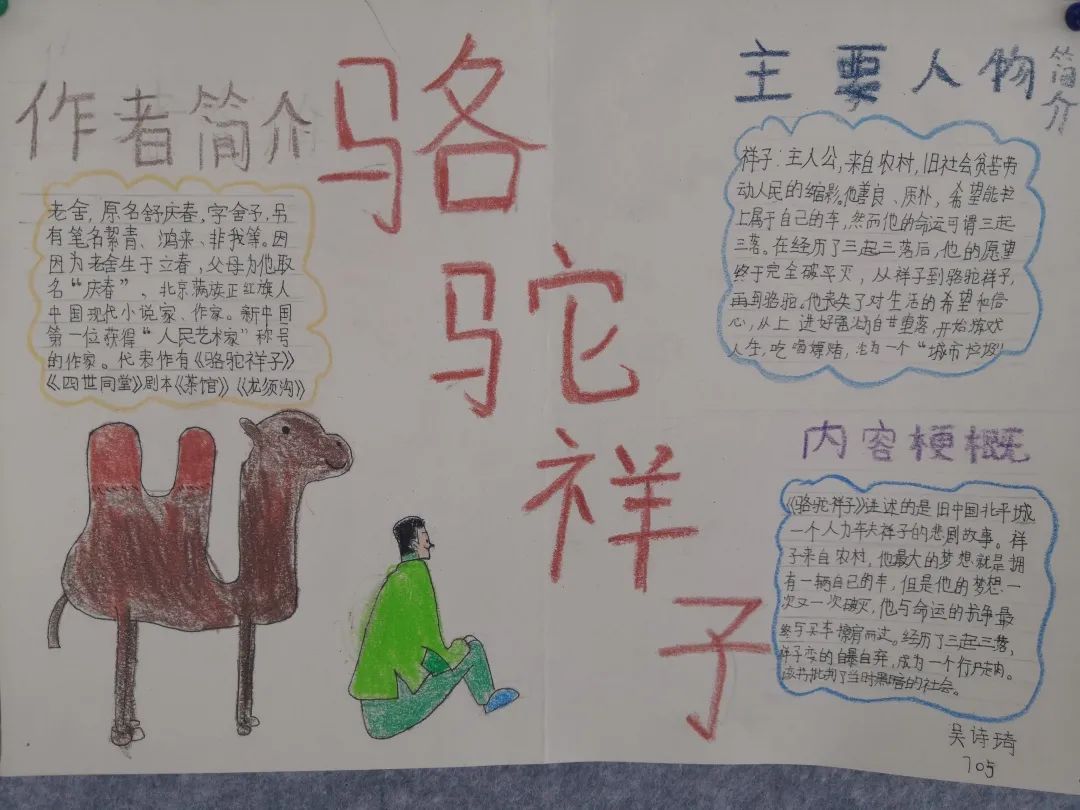 作者简介
老舍,原名舒庆春,字舍予,另
有笔名絜青、鸿来、非我等。因
因为老舍生于立春,父母为他取
名“庆春”、北京满族正红旗人
中国现代小说家、作家。新中国
第一位获得“人民艺术家”称号
的作家。代表作有《骆驼祥子》
《四世同堂》剧本《茶馆》《龙须沟》
骆
驼
祥
子
主要人物简介
祥子:主人公,来自农村,旧社会贫苦劳
动人民的缩影。他善良、质朴,希望能
上属于自己的车,然而他的命运可谓三起
三落。在经历了三起三落后,他的愿望
终于完全破灭,从祥子到骆驼祥子,
再到骆驼。他丧失了对生活的希望和信
心,从上进好强沦为自甘堕落,开始游戏
人生,吃喝嫖赌,沦为一个“城市垃圾”
内容梗概
《骆驼祥子》讲述的是旧中国北平城
一个人力车夫祥子的悲剧故事。祥
子来自农村,他最大的梦想就是拥
有一辆自己的车,但是他的梦想一
次又一次破灭,他与命运的抗争最
终与买车擦肩而过。经历了三起三落,
祥子变的自暴自弃,成为一个行尸走肉。
该书批判了当时黑暗的社会。
吴诗琦
705